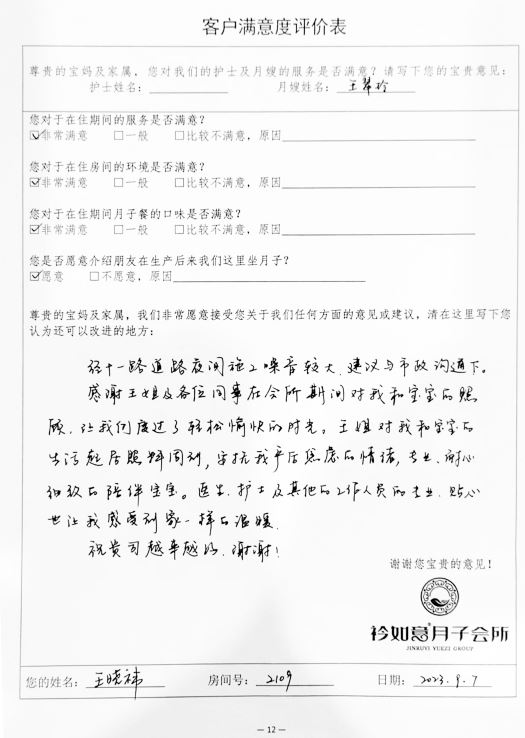 客户满意度评价表
尊贵的宝妈及家属，您对我们的护士及月嫂的服务是否满意？请写下您的宝贵意见：
护士姓名：　月嫂姓名：王翠玲
您对于在住期间的服务是否满意？
☑非常满意　□一般　□比较不满意，原因
您对于在住房间的环境是否满意？
☑非常满意　□一般　□比较不满意，原因
您对于在住期间月子餐的口味是否满意？
☑非常满意　□一般　□比较不满意，原因
您是否愿意介绍朋友在生产后来我们这里坐月子？
☑愿意　□不愿意，原因
尊贵的宝妈及家属，我们非常愿意接受您关于我们任何方面的意见或建议，请在这里写下您
认为还可以改进的地方：
经十一路道路夜间施工噪音较大，建议与市政沟通下。
感谢王姐及各位同事在会所期间对我和宝宝的照
顾，让我们度过了轻松愉快的时光，王姐对我和宝宝的
生活起居照料周到，安抚我产后焦虑的情绪，专业、耐心
细致的陪伴宝宝。医生、护士及其他的工作人员的专业、贴心
也让我感受到家一样的温暖。
祝贵司越来越好，谢谢！
谢谢您宝贵的意见！
衿如意月子会所
JINRUYI YUEZI GROUP
您的姓名：王晓祎　房间号：2109　日期：2023.9.7
— 12 —